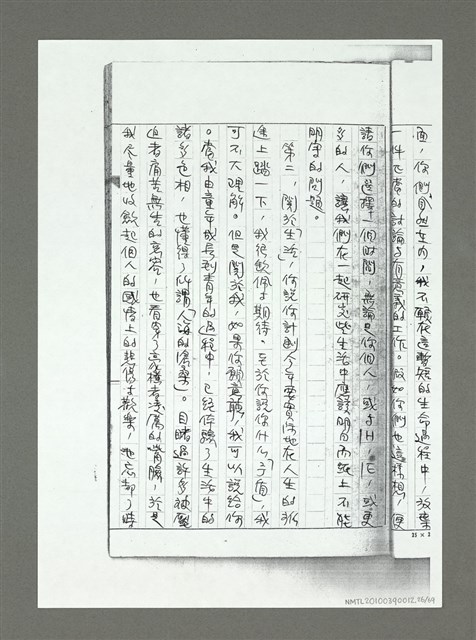 面，你們自然在內，我不願在這短短的生命過程中，放棄
一件正當的討論与有意義的工作。假如你們也這樣想，便
請你們選擇一個時間，無論是你個人，或与H.E，或更
多的人，讓我們在一起研究些生活中應該明白而紙上不能
明白的問題。
第二，關於「生活」，你說你計劃今年要實實在在地在人生的旅
途上踏一下，我很欽佩与期待。至於你說你什么「矛盾」，我
可不大理解。但是關於我，如果你願意聽，我可以說給你
。當我由童年成長到青年的過程中，已經体驗了生活中的
諸多色相，也懂得了所謂「人海的滄桑」。目睹過許多被壓
迫者痛苦無告的哀容，也看穿了高權者淫威的嘴臉，於是
我尽量地收斂起個人的國度上的悲傷与歡樂，也忘却了時
25 × 2
NMTL20100390012.26/69